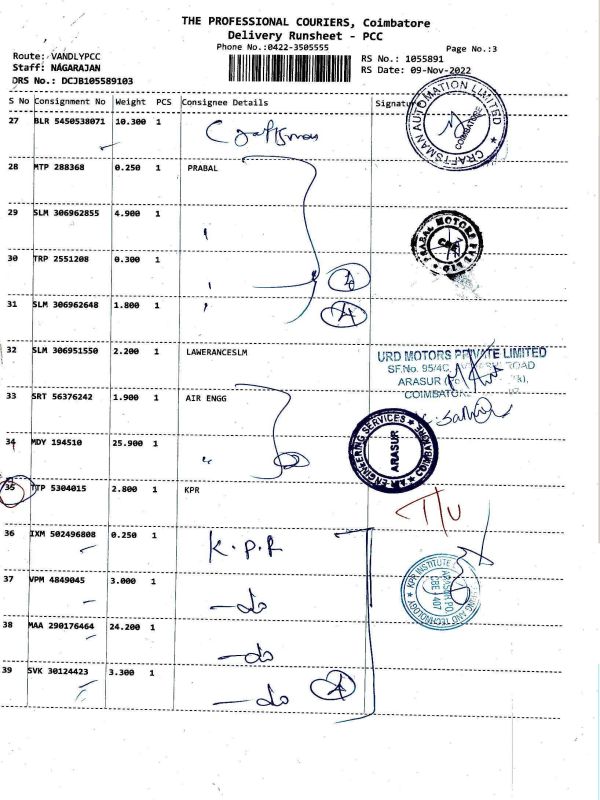 THE PROFESSIONAL COURIERS, Coimbatore
Delivery Runsheet - PCC
Phone No.:0422-3505555
Page No.:3
Route: VANDLYPCC
Staff: NAGARAJAN
DRS No.: DCJB105589103
RS No.: 1055891
RS Date: 09-Nov-2022
S No Consignment No Weight PCS Consignee Details Signature
27 BLR 5450538071 10.300 1 Craftsman
CRAFTSMAN AUTOMATION LIMITED
COIMBATORE
28 MTP 288368 0.250 1 PRABAL
29 SLM 306962855 4.900 1 "
PRABAL MOTORS PVT LTD
CBE
30 TRP 2551208 0.300 1 "
4
31 SLM 306962648 1.800 1 "
32 SLM 306951550 2.200 1 LAWERANCESLM
URD MOTORS PRIVATE LIMITED
SF.No. 95/4C, ROAD
ARASUR
COIMBATORE
33 SRT 56376242 1.900 1 AIR ENGG
34 MDY 194510 25.900 1 "
2
ENGINEERING SERVICES
ARASUR
COIMBATORE
35 TTP 5304015 2.800 1 KPR
36 IXM 502496808 0.250 1 K.P.R
37 VPM 4849045 3.000 1 -do
KPR INSTITUTE OF ENGINEERING AND TECHNOLOGY
ARASUR PO
CBE - 407
38 MAA 290176464 24.200 1 -do
39 SVK 30124423 3.300 1 -do
4